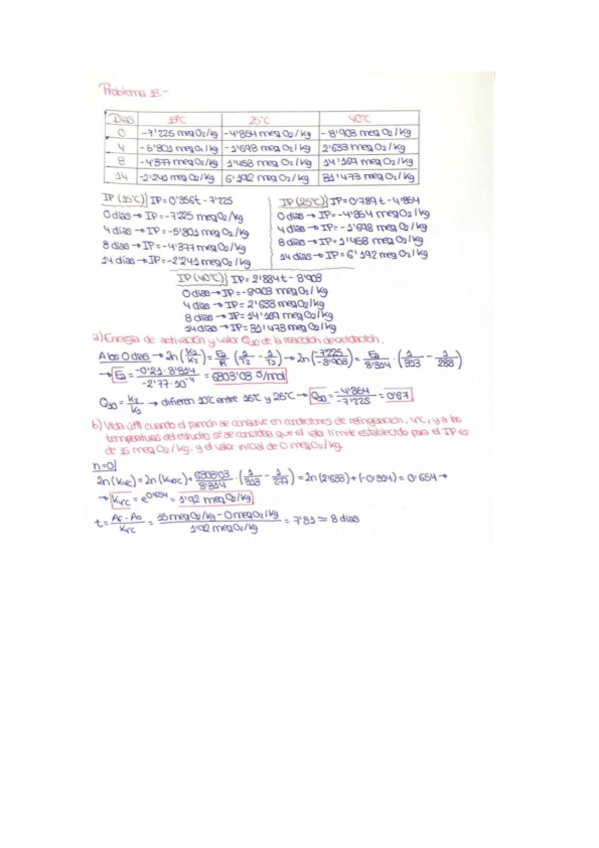 Problema 13.-
Días 15ºC 25ºC 40ºC
0 -7'225 meq O2/kg -4'854 meq O2/kg -8'903 meq O2/kg
4 -5'801 meq O2/kg -1'698 meq O2/kg 2'633 meq O2/kg
8 -4'377 meq O2/kg 1'458 meq O2/kg 14'169 meq O2/kg
14 -2'241 meq O2/kg 6'192 meq O2/kg 31'473 meq O2/kg
IP (15ºC) IP=0'356t-7'225
0 días → IP=-7'225 meq O2/kg
4 días → IP=-5'801 meq O2/kg
8 días → IP=-4'377 meq O2/kg
14 días → IP=-2'241 meq O2/kg
IP (25ºC) IP=0'789t-4'854
0 días → IP=-4'854 meq O2/kg
4 días → IP=-1'698 meq O2/kg
8 días → IP=1'458 meq O2/kg
14 días → IP=6'192 meq O2/kg
IP (40ºC) IP=2'884t-8'903
0 días → IP=-8'903 meq O2/kg
4 días → IP=2'633 meq O2/kg
8 días → IP=14'169 meq O2/kg
14 días → IP=31'473 meq O2/kg
a) Energía de activación y valor Q10 de la reacción de oxidación.
A los 0 días → ln(k1/k2) = Ea/R · (1/T2 - 1/T1) → ln(-7'225/-8'903) = Ea/8'314 · (1/313 - 1/288)
→ Ea = -0'21·8'314/-2'77·10⁻⁴ = 6303'03 J/mol
Q10 = k2/k1 → difieren 10ºC entre 15ºC y 25ºC → Q10 = -4'854/-7'225 = 0'67
b) Vida útil cuando el jamón se conserve en condiciones de refrigeración, 4ºC, y a las
temperaturas del estudio si se considera que el valor límite establecido para el IP es
de 15 meq O2/kg. y el valor inicial de 0 meq O2/kg.
n=0
ln(k4ºC) = ln(k40ºC) + 6303'03/8'314 · (1/313 - 1/277) = ln(2'633) + (-0'314) = 0'654 →
→ k4ºC = e^0'654 = 1'92 meq O2/kg
t = Ae-A0/k4ºC = 15 meq O2/kg - 0 meq O2/kg / 1'92 meq O2/kg = 7'81 ≃ 8 días